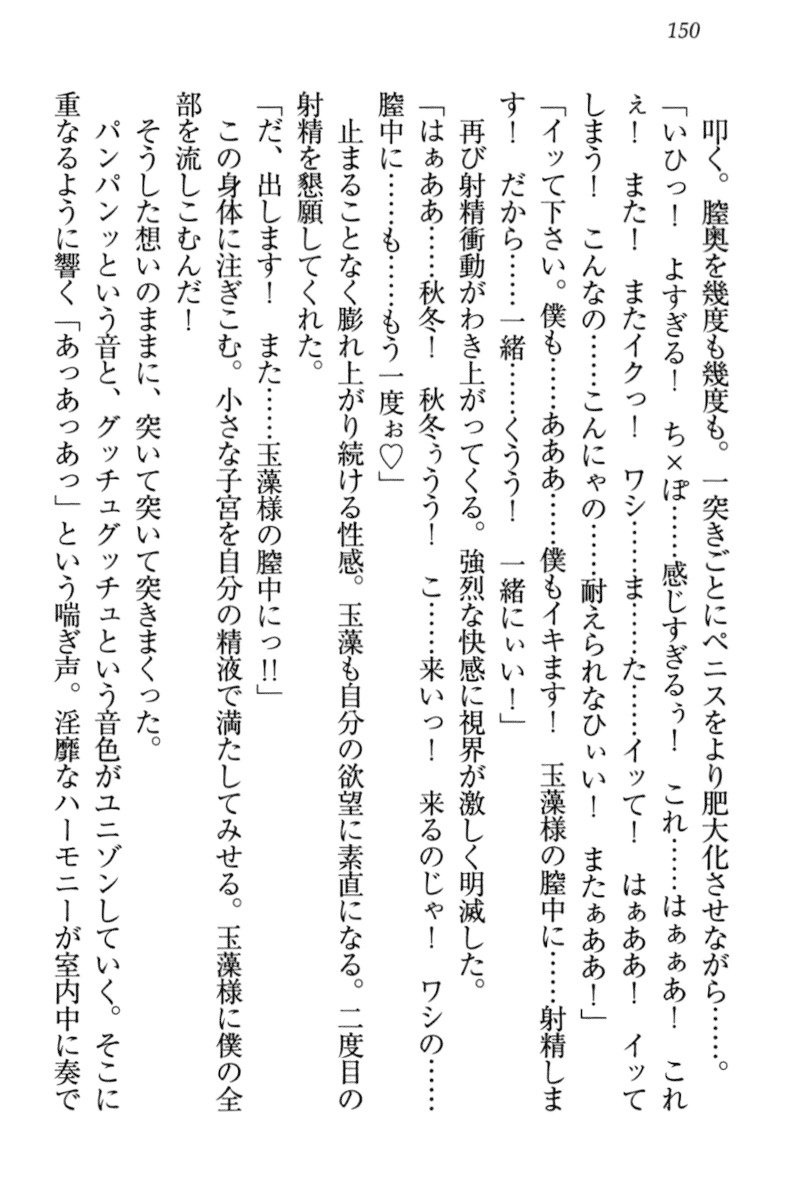 150
叩く。膣奥を幾度も幾度も。一突きごとにペニスをより肥大化させながら……。
「いひっ！　よすぎる！　ち×ぽ……感じすぎるぅ！　これ……はぁぁあ！　これ
ぇ！　また！　またイクっ！　ワシ……ま……た……イッて！　はぁああ！　イッて
しまう！　こんなの……こんにゃの……耐えられなひぃい！　またぁああ！」
「イッて下さい。僕も……あああ……僕もイキます！　玉藻様の膣中に……射精しま
す！　だから……一緒……くうう！　一緒にぃい！」
再び射精衝動がわき上がってくる。強烈な快感に視界が激しく明滅した。
「はぁああ……秋冬！　秋冬ぅうう！　こ……来いっ！　来るのじゃ！　ワシの……
膣中に……も……もう一度ぉ♡」
止まることなく膨れ上がり続ける性感。玉藻も自分の欲望に素直になる。二度目の
射精を懇願してくれた。
「だ、出します！　また……玉藻様の膣中にっ!!」
この身体に注ぎこむ。小さな子宮を自分の精液で満たしてみせる。玉藻様に僕の全
部を流しこむんだ！
そうした想いのままに、突いて突いて突きまくった。
パンパンッという音と、グッチュグッチュという音色がユニゾンしていく。そこに
重なるように響く「あっあっあっ」という喘ぎ声。淫靡なハーモニーが室内中に奏で